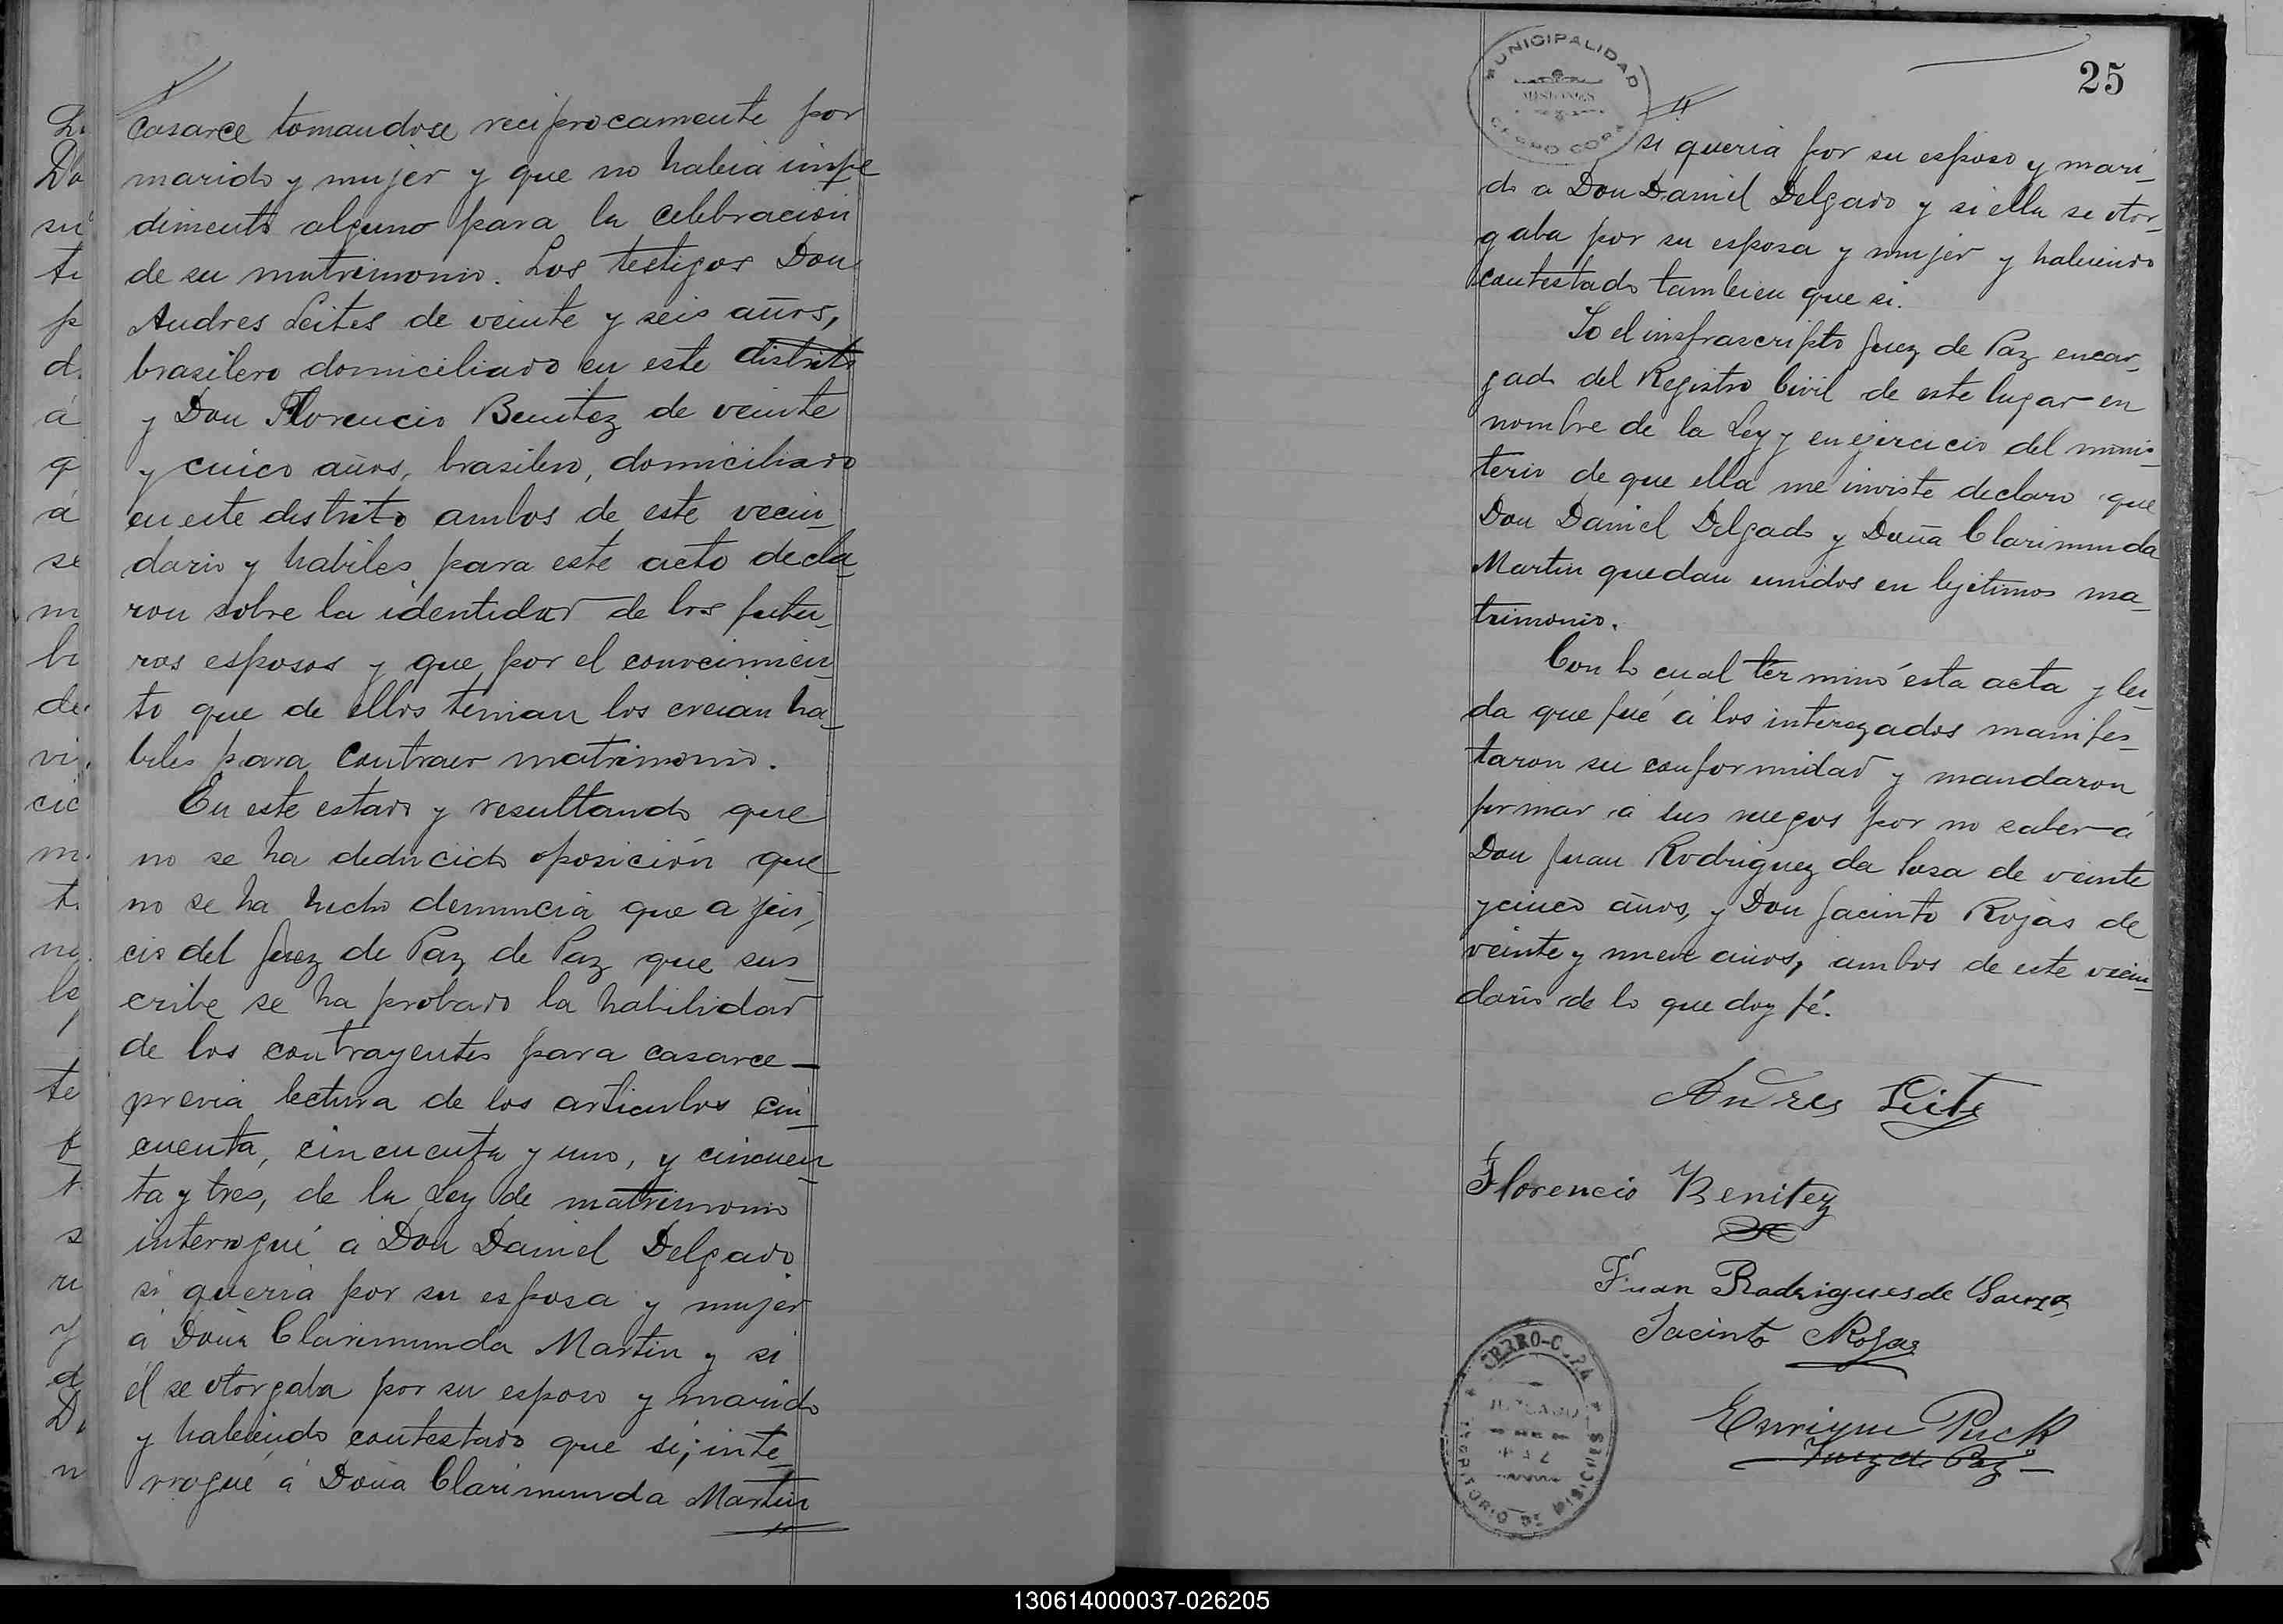 casarce tomandose reciprocamente por
marido y mujer y que no habia impe
dimento alguno para la celebracion
de su matrimonio. Los testigos Don
Andres Leites de veinte y seis años,
brasilero domiciliado en este distrito
y Don Florencio Benitez de veinte
y cinco años, brasilero, domiciliado
en este distrito ambos de este vecin_
dario y habiles para este acto decla_
ron sobre la identidad de los futu_
ros esposos y que por el conocimien_
to que de ellos tenian los creian ha_
biles para contraer matrimonio.
En este estado y resultando que
no se ha deducido oposición que
no se ha hecho denuncia que a jui_
cio del Juez de Paz de Paz que sus_
cribe se ha probado la habilidad
de los contrayentes para casarce_
previa lectura de los articulos cin_
cuenta, cincuenta y uno, y cincuen_
ta y tres, de la Ley de matrimonio
interrogué a Don Daniel Delgado
si queria por su esposa y mujer
á Doña Clarimunda Martin y si
él se otorgaba por su esposo y marido
y habiendo contestado que si; inte_
rrogué á Doña Clarimunda Martin
MUNICIPALIDAD
MISIONES
CERRO CORA
25
si queria por su esposo y mari_
do a Don Daniel Delgado y si ella se otor_
gaba por su esposa y mujer y habiendo
contestado tambien que si.
Yo el insfrascripto Juez de Paz encar_
gado del Registro Civil de este lugar en
nombre de la Ley y en ejercicio del minis_
terio de que ella me inviste declaro que
Don Daniel Delgado y Doña Clarimunda
Martin quedan unidos en lejitimos ma_
trimonio.
Con lo cual términó ésta acta y lei_
da que fué á los interezados manifes_
taron su conformidad y mandaron
firmar á sus ruegos por no saber á
Don Juan Rodriguez da Sosa de veinte
y cinco años, y Don Jacinto Rojas de
veinte y nueve años, ambos de este vecin_
dario de lo que doy fé.
Andres Leite
Florencio Benitez
Juan Rodrigues de Souza
Jacinto Rojas
Enrique Puck
Juez de Paz
CERRO-CORA
JUZGADO
DE
PAZ
TERRITORIO DE MISIONES
130614000037-026205